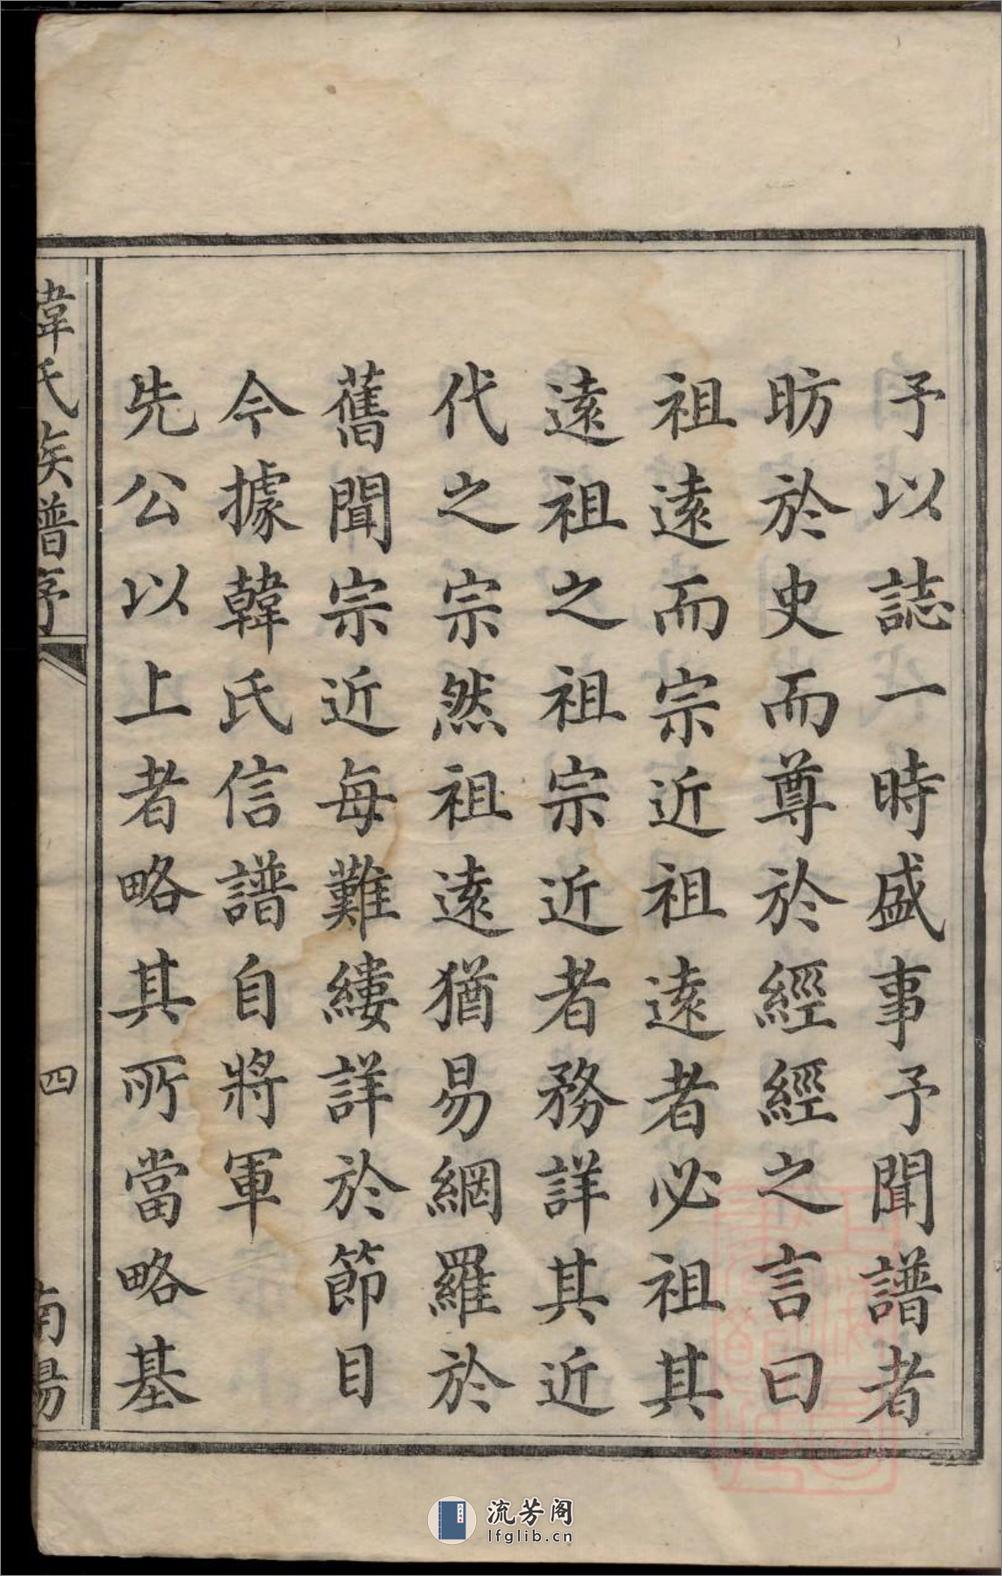 予以誌一時盛事予聞譜者
昉於史而尊於經經之言曰
祖遠而宗近祖遠者必祖其
遠祖之祖宗近者務詳其近
代之宗然祖遠猶易網羅於
舊聞宗近每難縷詳於節目
今據韓氏信譜自將軍
先公以上者略其所當略基
韓氏族譜序
四
南陽
流芳阁
lfglib.cn